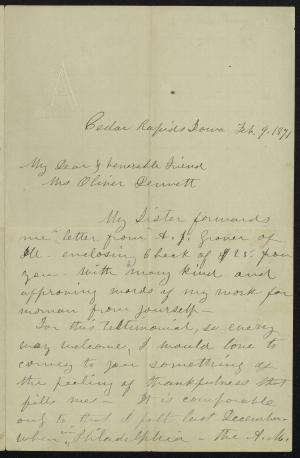 Cedar Rapids Iowa Feb. 9. 1871
My Dear & Venerable Friend
Mrs Oliver Dennett
My Sister forwards
me letter from A. J. Grover of
Ill - enclosing check of $25 from
you - with many kind and
approving words of my work for
woman from yourself -
For this testimonial, so every
way welcome, I would love to
convey to you something of
the feeling of thankfulness that
fills me - It is comparable
only to that I felt last December
when in Philadelphia - the A.